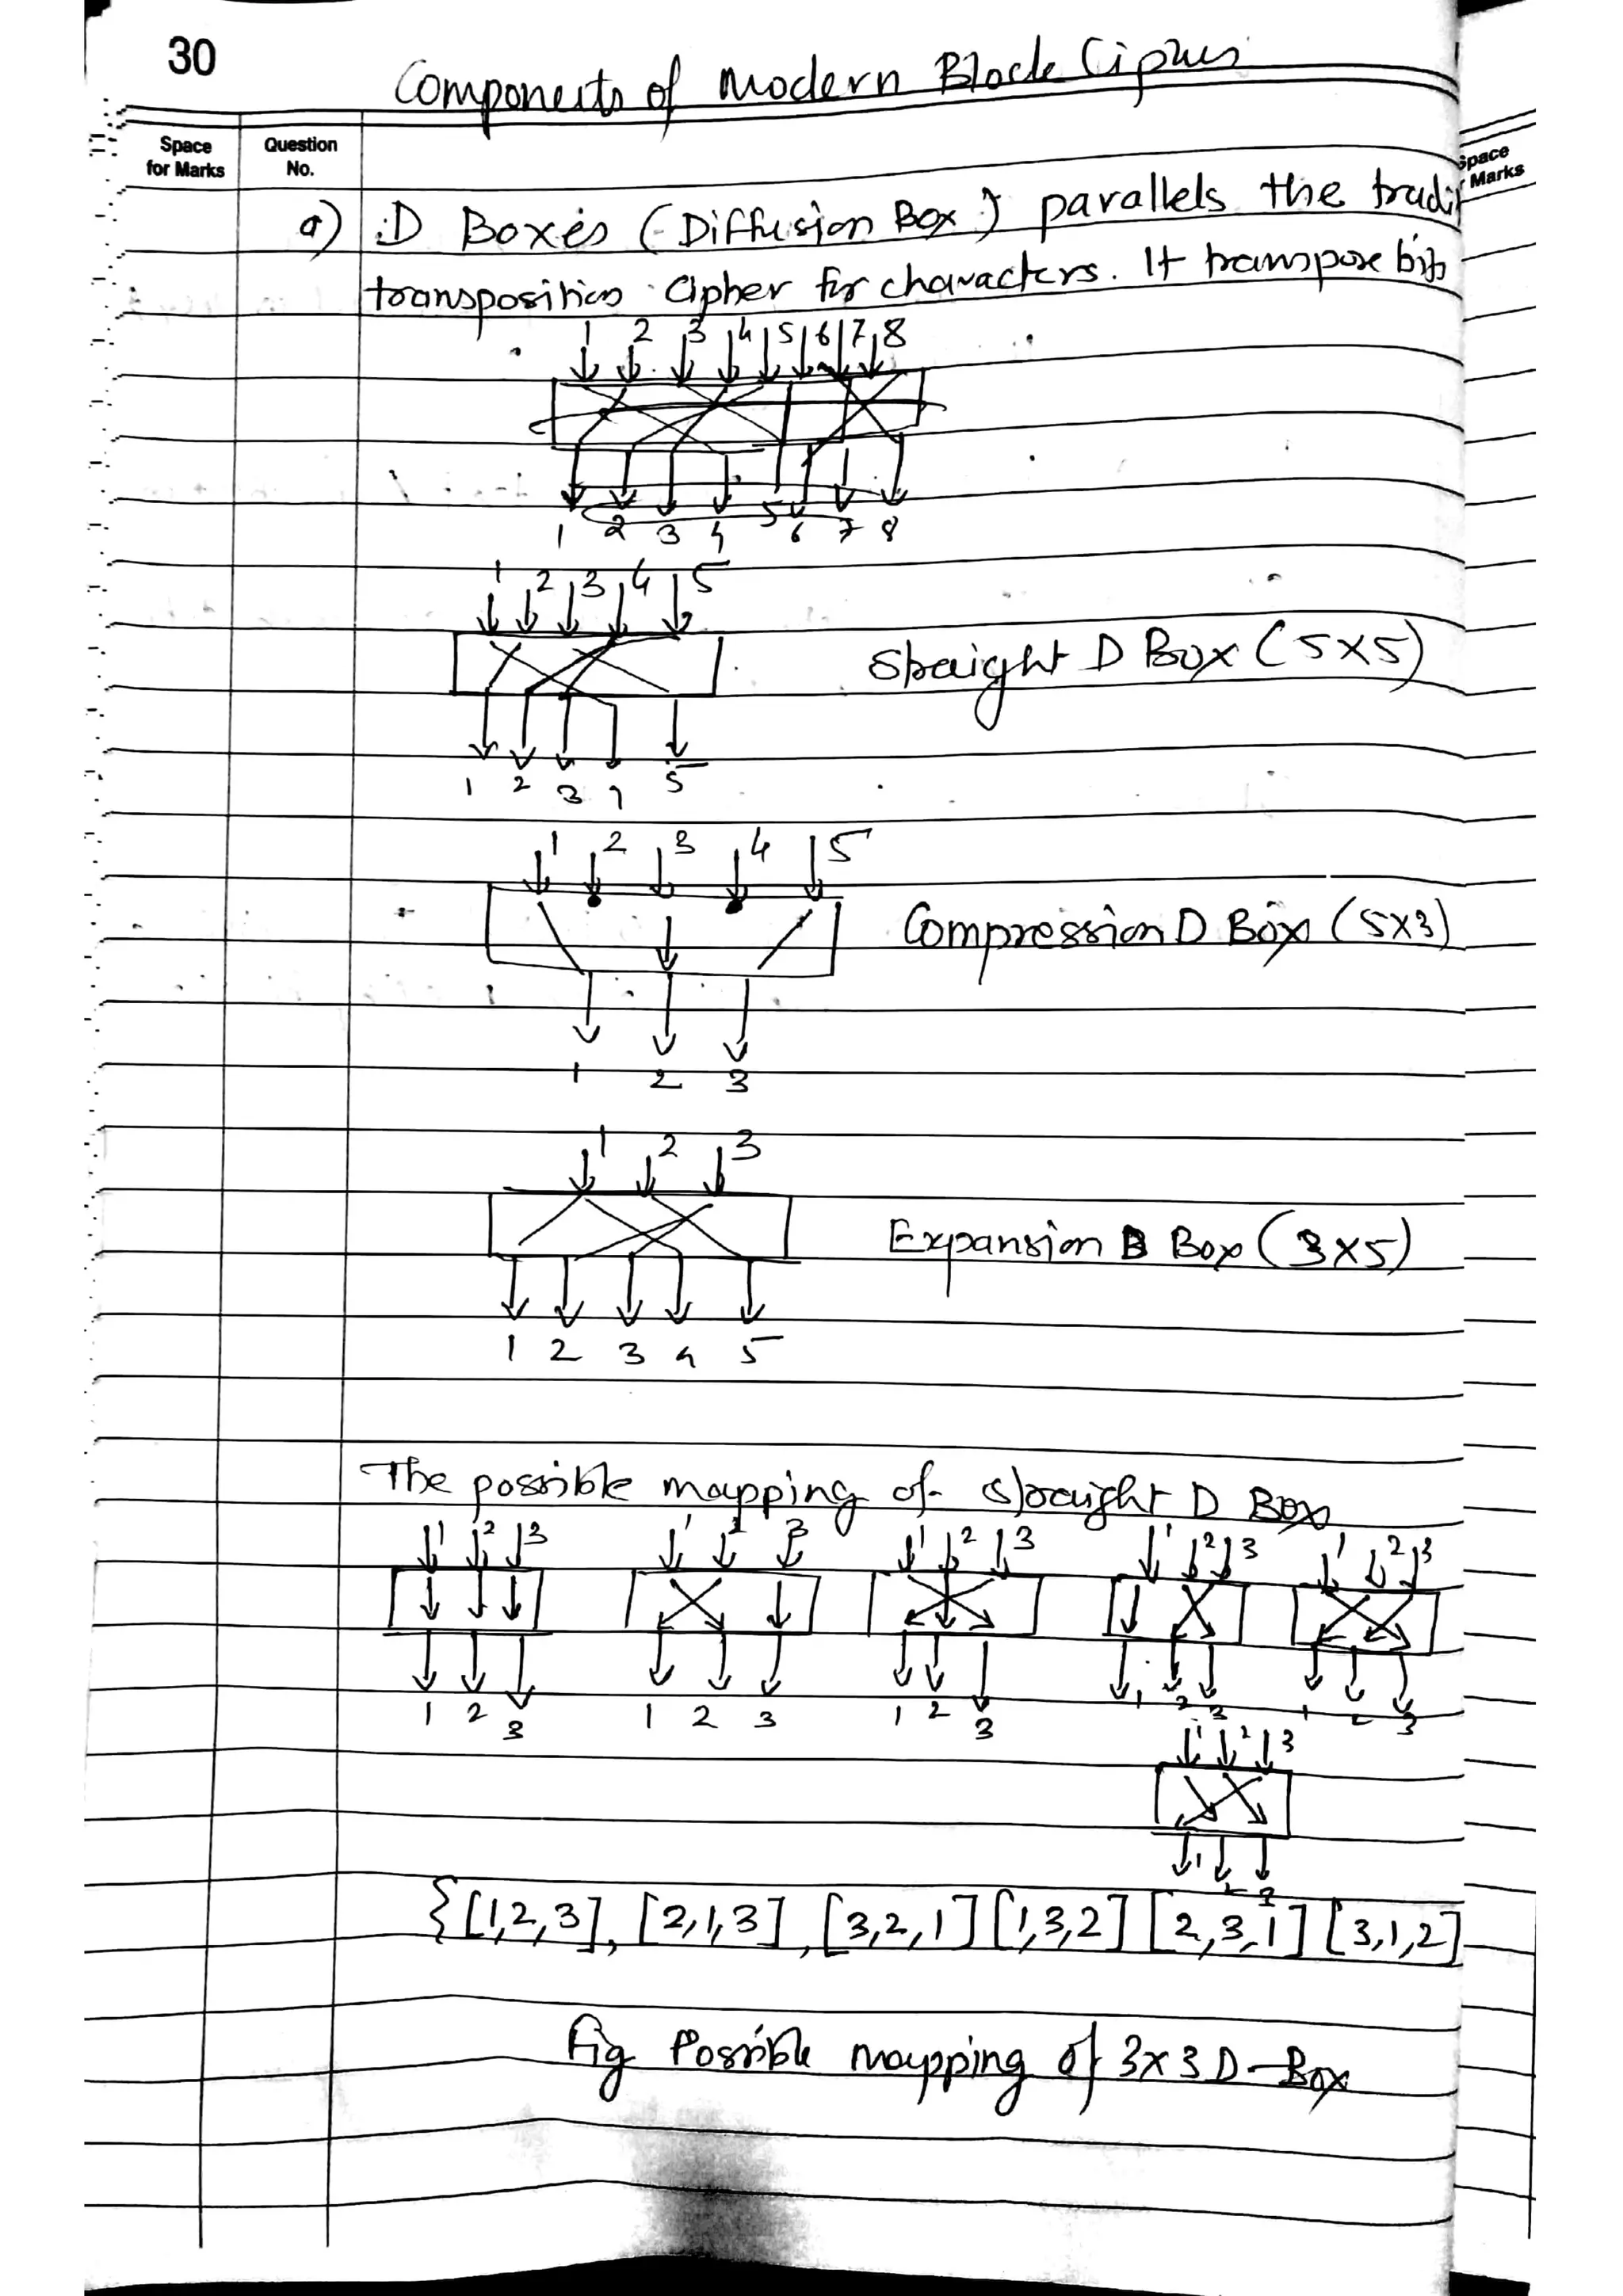 30
Components of Modern Block Ciphers
Space for Marks
Question No.
Space
Marks
a) D Boxes (Diffusion Box) parallels the tradi
transposition Cipher for characters. It transpose bits
1 2 3 4 5 6 7 8
1 2 3 4 5 6 7 8
1 2 3 4 5
Straight D Box (5x5)
1 2 3 4 5
1 2 3 4 5
Compression D Box (5x3)
1 2 3
1 2 3
Expansion B Box (3x5)
1 2 3 4 5
The possible mapping of straight D Box
1 2 3 1 2 3 1 2 3 1 2 3 1 2 3
1 2 3 1 2 3 1 2 3 1 2 3 1 2 3
1 2 3
1 2 3
{[1,2,3], [2,1,3], [3,2,1] [1,3,2] [2,3,1] [3,1,2]
Fig Possible mapping of 3x3 D-Box